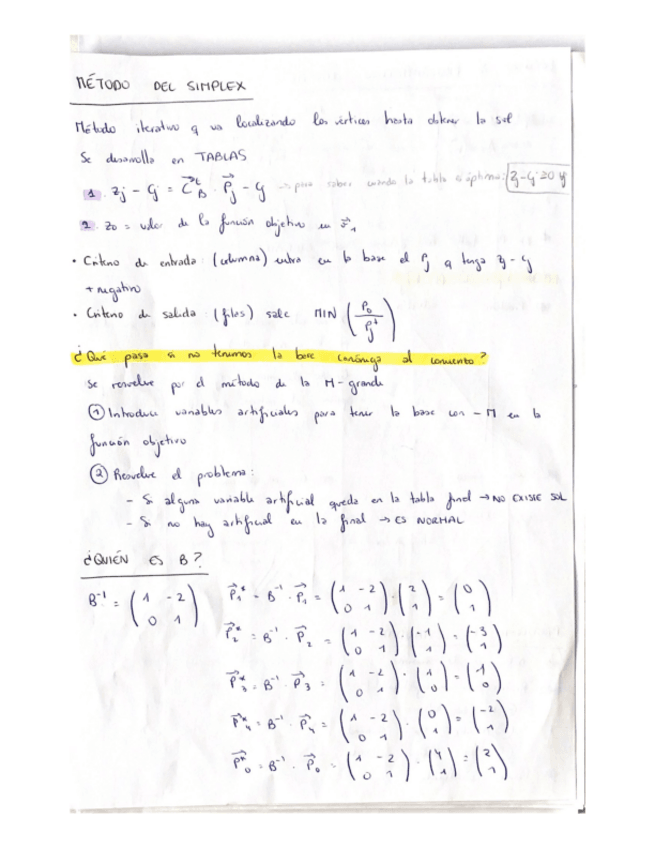 MÉTODO DEL SIMPLEX
Método iterativo q va localizando los vértices hasta obtener la sol
Se desarrolla en TABLAS
1. Zj - Cj = C⃗_B^t · P⃗j - Cj → para saber cuando la tabla es óptima: Zj - Cj ≥ 0 ∀j
2. Z0 = valor de la función objetivo en
• Criterio de entrada: (columna) entra en la base el Pj q tenga Zj - Cj
+ negativo
• Criterio de salida: (filas) sale MIN (P0 / Pj+)
¿Qué pasa si no tenemos la base canónica al comienzo?
Se resuelve por el método de la M-grande
① Introducir variables artificiales para tener la base con -M en la
función objetivo
② Resolver el problema:
- Si alguna variable artificial queda en la tabla final → NO EXISTE SOL
- Si no hay artificial en la final → ES NORMAL
¿QUIÉN ES B?
B⁻¹ = (1 -2; 0 1)
P⃗1* = B⁻¹ · P⃗1 = (1 -2; 0 1) · (2; 1) = (0; 1)
P⃗2* = B⁻¹ · P⃗2 = (1 -2; 0 1) · (-1; 1) = (-3; 1)
P⃗3* = B⁻¹ · P⃗3 = (1 -2; 0 1) · (1; 0) = (1; 0)
P⃗4* = B⁻¹ · P⃗4 = (1 -2; 0 1) · (0; 1) = (-2; 1)
P⃗0* = B⁻¹ · P⃗0 = (1 -2; 0 1) · (4; 1) = (2; 1)